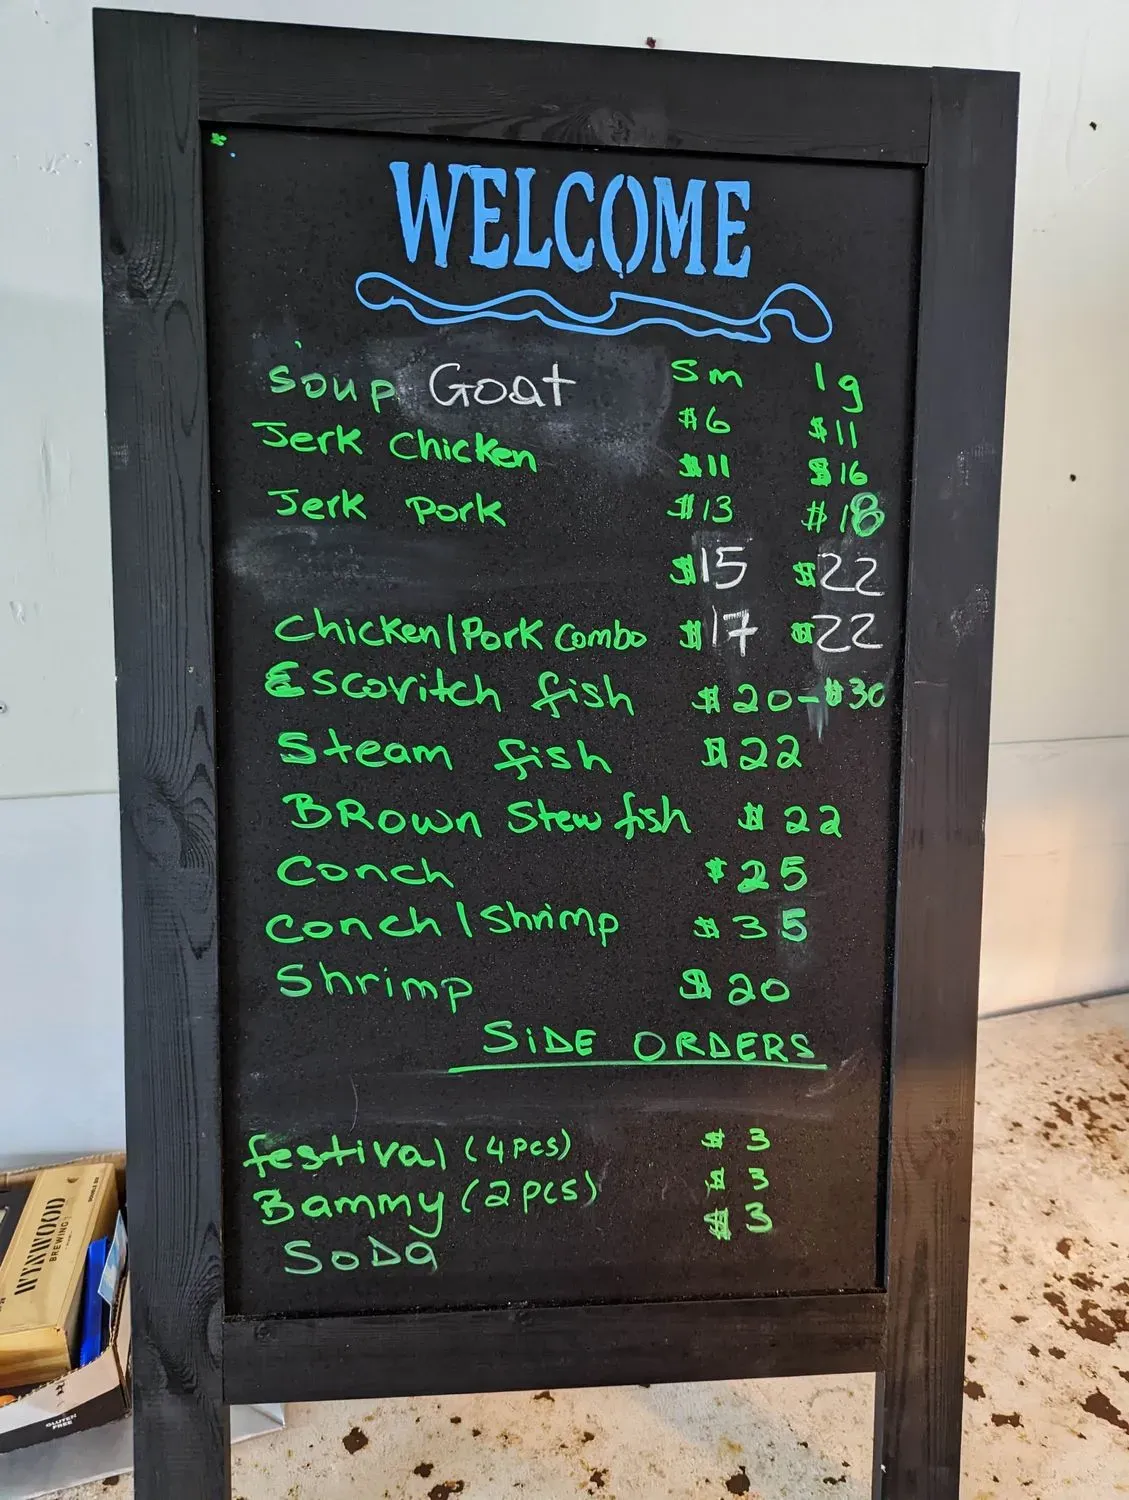 WELCOME
Sm lg
Soup Goat $6 $11
Jerk Chicken $11 $16
Jerk Pork $13 $18
$15 $22
Chicken/Pork Combo $17 $22
Escovitch fish $20-$30
Steam fish $22
BROWN Stew fish $22
Conch $25
Conch/Shrimp $35
Shrimp $20
SiDE ORDERS
festival (4pcs) $3
Bammy (2pcs) $3
SoDa $3
WYNWOOD
BREWING
GLUTEN
FREE